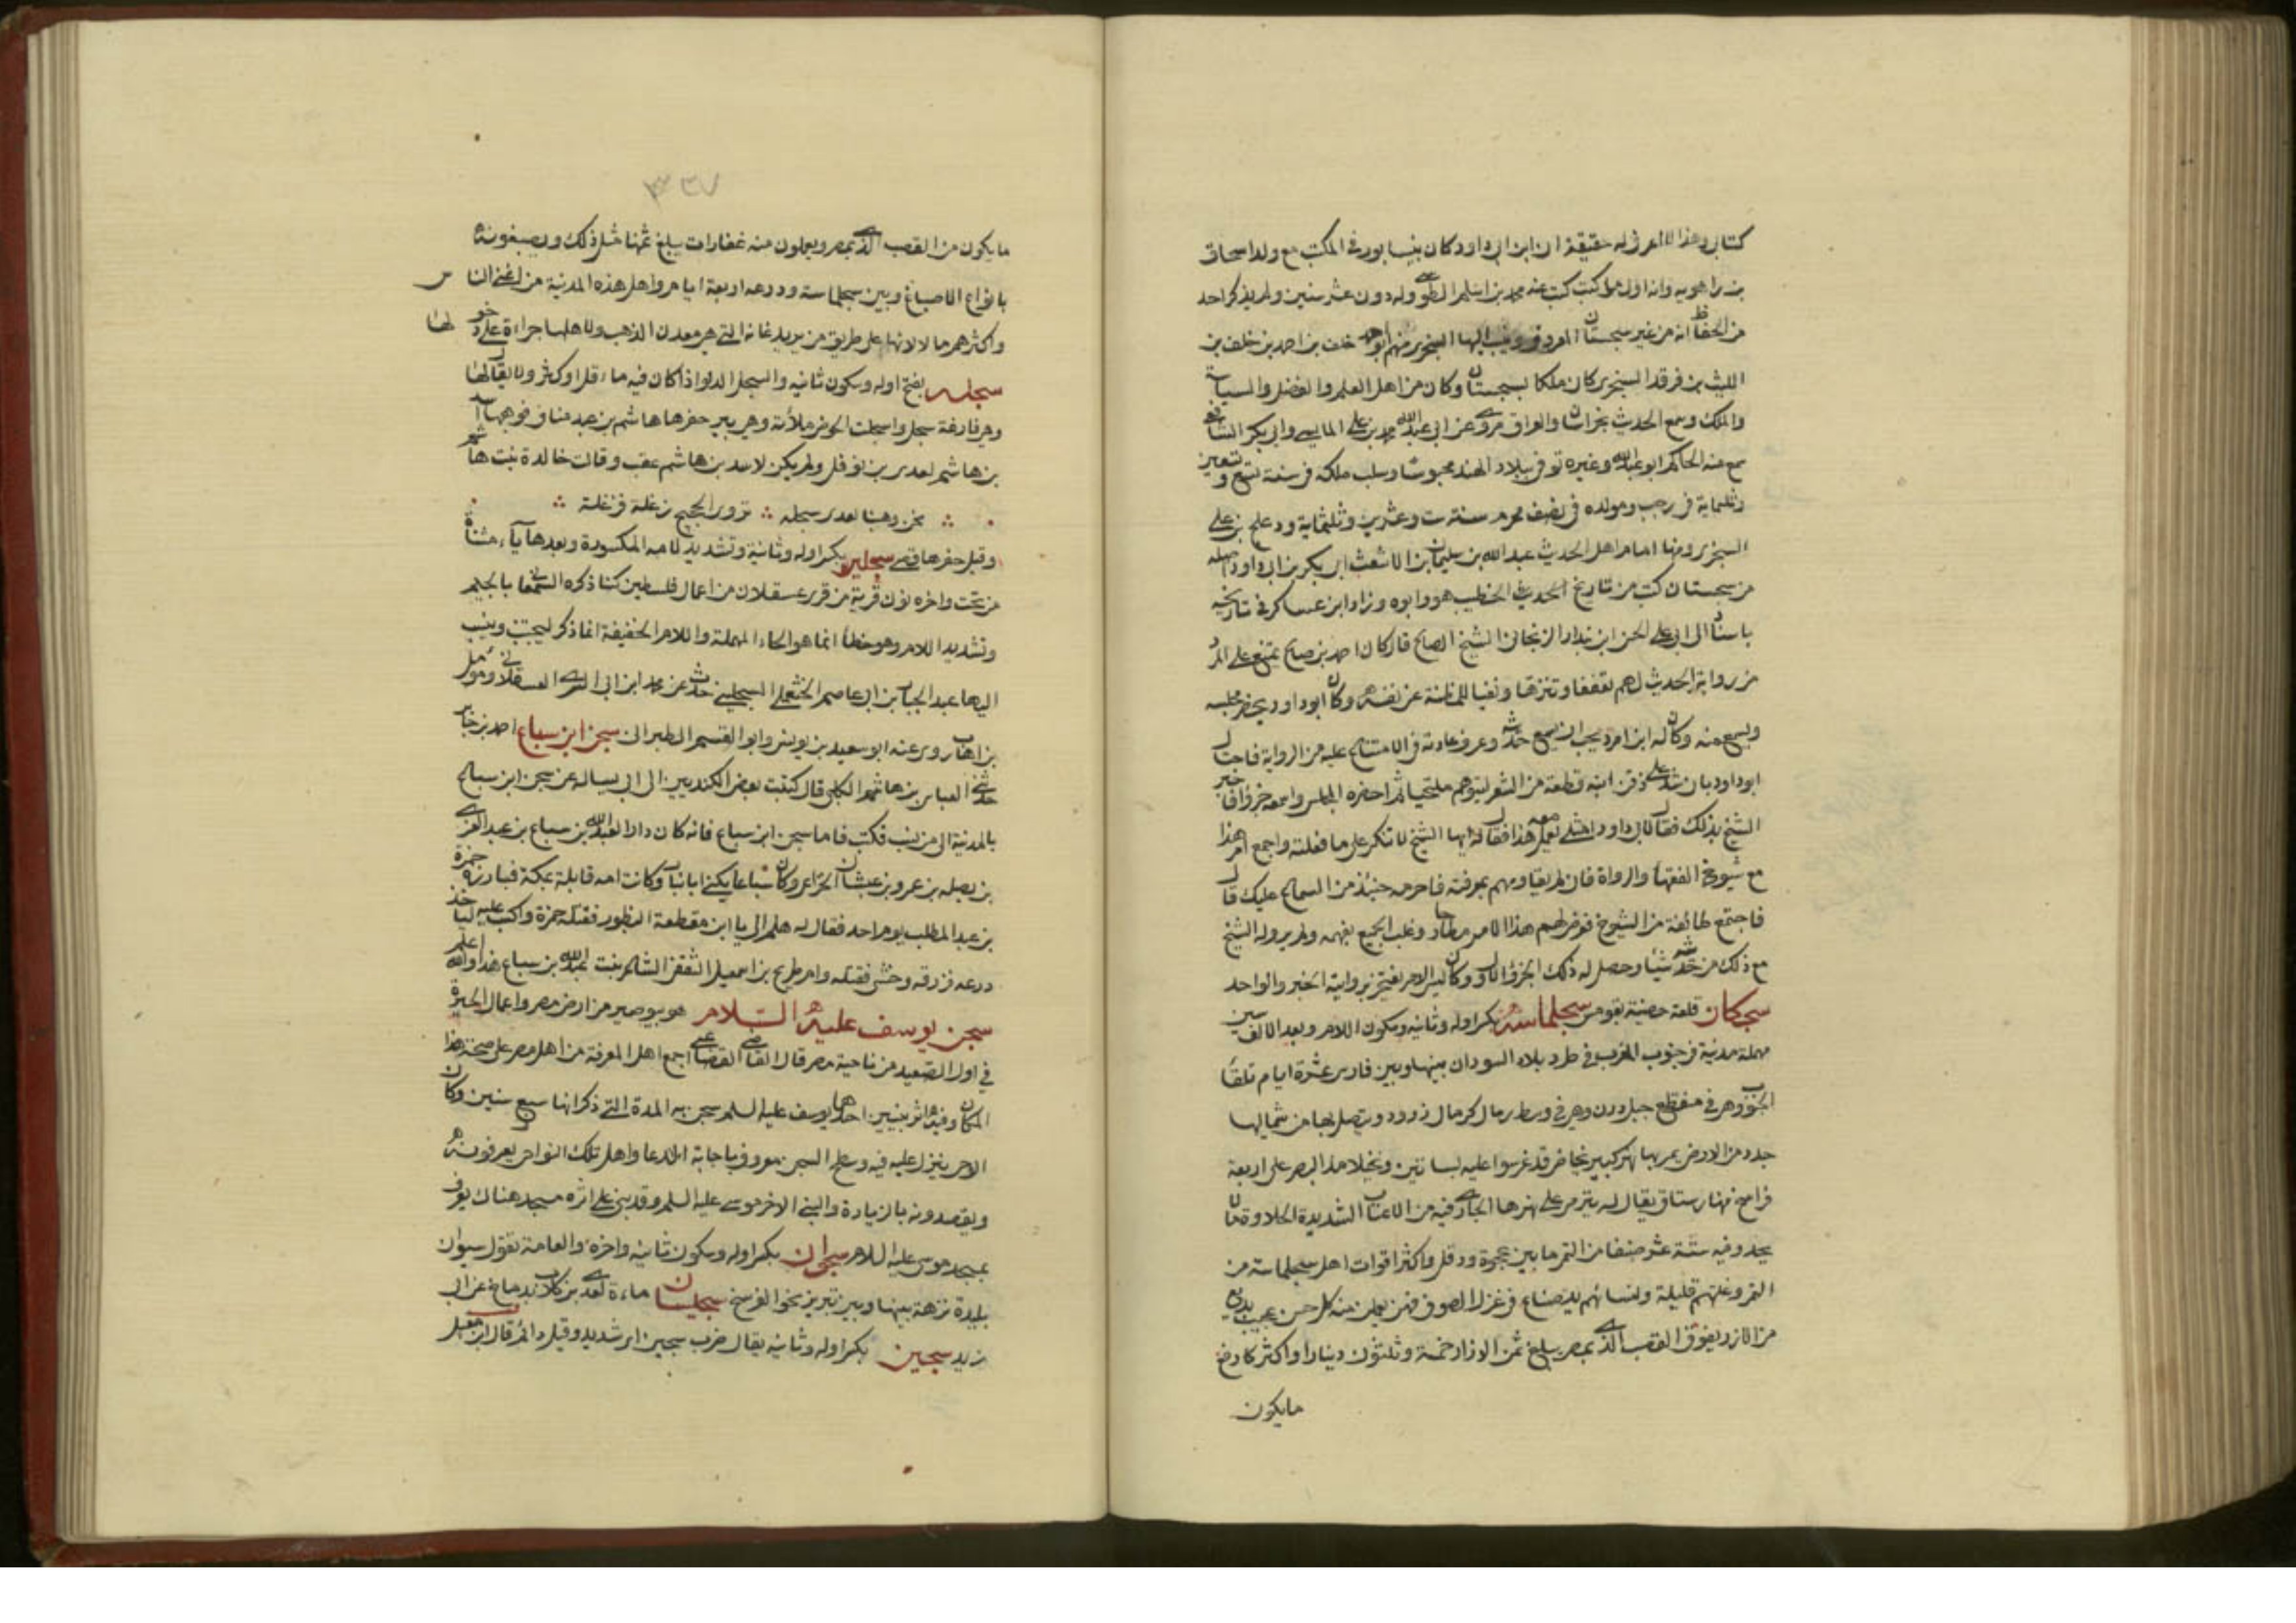 كتابي وهذا الامر له حقيقة ان ابن ابي داود كان بنيسابور في المكتب مع ولد اسحاق
بن راهويه وانه اول ما كتب كتب عنه محمد بن اسلم الطوسي وله دون عشر سنين ولم يذكر احد
من الحفاظ انه من غير سجستان المعروف وينسب اليها السجزي منهم ابو احمد خلف بن احمد بن خلف بن
الليث بن فرقد السجزي كان ملكا بسجستان وكان من اهل العلم والفضل والسياسة
والملك وسمع الحديث بخراسان والعراق روى عن ابي عبدالله محمد بن علي الماليسي وابي بكر الشافعي
سمع منه الحاكم ابو عبدالله وغيره توفي ببلاد الهند محبوسا وسلب ملكه في سنة تسع وتسعين
وثلثماية في رجب ومولده في نصف محرم سنة ست وعشرين وثلثماية ودعلج بن علي
السجزي ومنها امام اهل الحديث عبد الله بن سليمان بن الاشعث ابي بكر بن ابي داود اصله
من سجستان كتب من تاريخ الحديث الخطيب هو وابوه وزاد ابن عساكر في تاريخه
باسناد الى ابي علي الحسن ابن بندار الزنجاني الشيخ الصالح قال كان احمد بن صالح يمتنع على المرد
من رواية الحديث لهم تعففا وتنزها ونفيا للمظنة عن نفسه وكان ابو داود يحضر مجلسه
ويسمع منه وكان له ابن امرد يحب ان يسمع حديثه وعرف عادته في الامتناع عليه من الرواية فاحتال
ابو داود بان شد على ذقن ابنه قطعة من الشعر ليتوهم ملتحيا ثم احضره المجلس واسمعه جزؤا فاخبر
الشيخ بذلك فقال لابي داود امثلي يعمل معه هذا فقال له ايها الشيخ لا تنكر علي ما فعلته واجمع امردي هذا
مع شيوخ الفقهاء والرواة فان لم يقاومهم بمعرفته فاحرمه حينئذ من السماع عليك قال
فاجتمع طائفة من الشيوخ فتعرض لهم هذا الامرد مطارحا وغلب الجميع بفهمه ولم يروله الشيخ
مع ذلك من حديثه شيئا وحصل له ذلك الجزؤ الاول وكان ليس الامر يفتخر برواية الخبر والواحد
سجكان قلعة حصينة بقومس سجلماسة بكسر اوله وثانيه وسكون اللام وبعد الالف سين
مهملة مدينة في جنوب المغرب في طرف بلاد السودان بينها وبين فاس عشرة ايام تلقاء
الجنوب وهي في منقطع جبل درن وهي في وسط رمال كرمال زرود ويتصل بها من شماليها
جدد من الارض يمر بها نهر كبير يخاض قد غرسوا عليه بساتين ونخيلا مد البصر على اربعة
فراسخ منها رستاق يقال له تيزمي على نهرها الجاري فيه من الاعناب الشديدة الحلاوة ما لا
يحد وفيه ستة عشر صنفا من التمر ما بين عجوة ودقل واكثر اقوات اهل سجلماسة من
التمر وغلتهم قليلة ولنسائهم يد صناع في غزل الصوف فهن يعملن منه كل حسن عجيب بديع
من الازر يفوق القصب الذي بمصر يبلغ ثمن الازار خمسة وثلثون دينارا واكثر كارفع
مايكون
٣٣٧
مايكون من القصب الذي بمصر ويعملون منه غفارات يبلغ ثمنها مثل ذلك ويصبغونه
بانواع الاصباغ وبين سجلماسة ودرعه اربعة ايام واهل هذه المدينة من اغنى الناس
واكثرهم مالا لانها على طريق من يريد غانه التي هي معدن الذهب ولاهلها جراءة على دخولها
سجله بفتح اوله وسكون ثانيه والسجل الدلو اذا كان فيه ماء قل او كثر ولا يقال لها
وهي فارغة سجل واسجلت الحوض ملأته وهي بير حفرها هاشم بن عبد مناف فوهبها اسد
بن هاشم لعدي بن نوفل ولم يكن لاسد بن هاشم عقب وقالت خالدة بنت هاشم
نحن وهبنا لعدي سجله ∴ تروي الحجيج زغلة فزغلة
وقيل حفرها قصي سجلين بكسر اوله وثانية وتشديد لامه المكسورة وبعدها ياء مثناة
من تحت واخره نون قرية من قرى عسقلان من اعمال فلسطين كذا ذكره السمعاني بالجيم
وتشديد اللام وهو خطأ انما هو الحاء المهملة واللام الخفيفة انما ذكر ليجتنب وينسب
اليها عبد الجبار بن ابي عاصم الخثعمي السجليني حدث عن محمد ابن ابي السري العسقلاني ومومل
بن اهاب روى عنه ابو سعيد بن يونس وابو القسم الطبراني سجن ابن سباع احمد بن جابر
حدثني العباس بن هاشم الكلبي قال كتبت بعض الكنديين الى ابي يساله عن سجن ابن سباع
بالمدينة الى من نسب فكتب فاما سجن ابن سباع فانه كان دارا لعبدالله بن سباع بن عبد العزى
بن نضله بن عمرو بن عبشان الخزاعي وكان سباع يكنى ابا نيار وكانت امه قابلة بمكة فبارزه حمزة
بن عبد المطلب يوم احد فقال له هلم الي يا ابن مقطعة البظور فقتله حمزة واكب عليه لياخذ
درعه فزرقه وحشي فقتله وام طريح بن اسمعيل الثقفي الشاعر بنت عبدالله بن سباع هذا والله اعلم
سجن يوسف عليه السلام هو بيوصير من ارض مصر واعمال الجيزة
في اول الصعيد من ناحية مصر قال القاضي القضاعي اجمع اهل المعرفة من اهل مصر على صحة هذا
المكان وفيه اثر نبيين احدهما يوسف عليه السلم سجن به المدة التي ذكر انها سبع سنين وكان
الوحي ينزل عليه فيه وسطح السجن معروف باجابة الدعا واهل تلك النواحي يعرفونه
ويقصدونه بالزيارة والنبي الاخر موسى عليه السلم وقد بني على اثره مسجد هناك يعرف
بمسجد موسى عليه السلام سجوان بكسر اوله وسكون ثانيه واخره والعامة تقول سيوان
بليدة نزهة بينها وبين تبريز نحو الفرسخ سجليسان ماءة لعدي بن كلاب بدماخ عن ابي
زيد سجين بكسر اوله وثانيه يقال ضرب سجين اي شديد وقيل دائم قال ابن مقبل